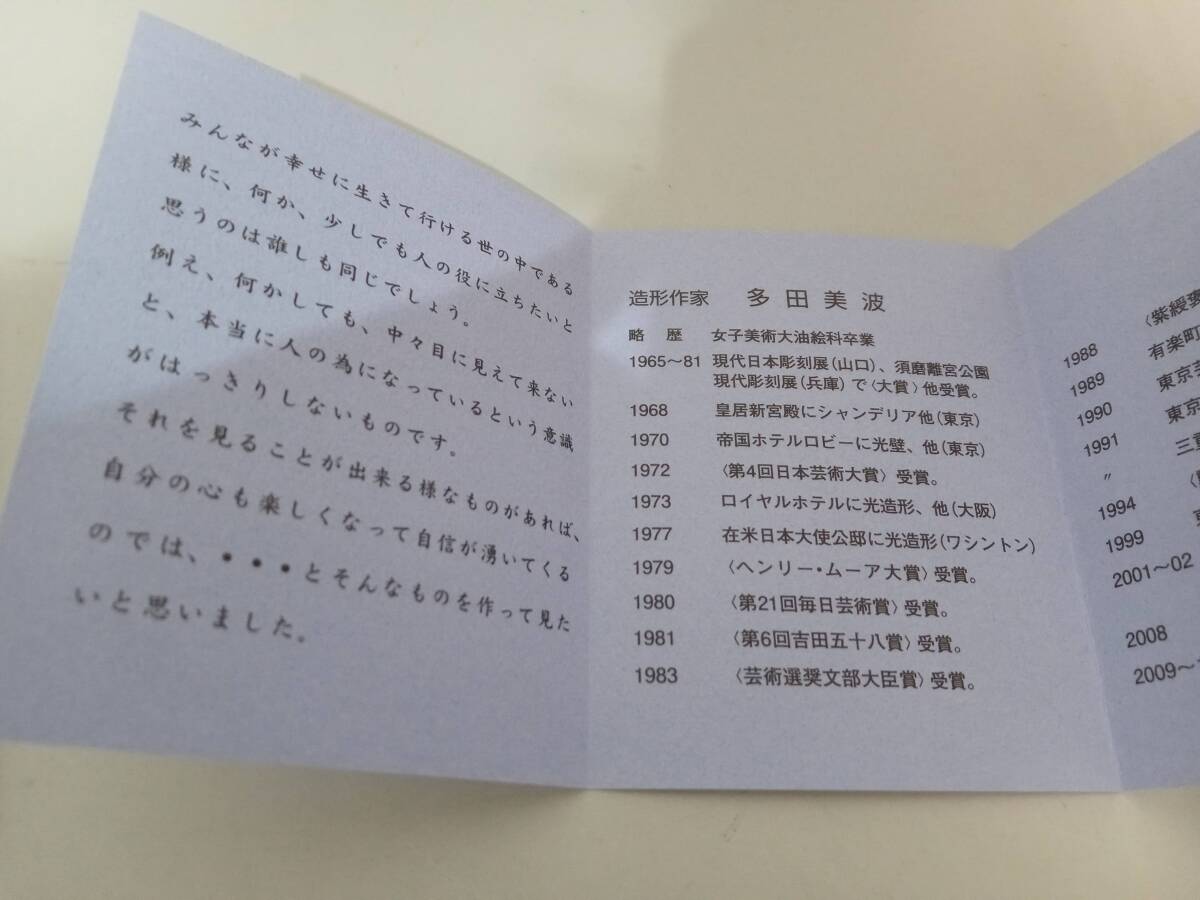 みんなが幸せに生きて行ける世の中である
様に、何か、少しでも人の役に立ちたいと
思うのは誰しも同じでしょう。
例え、何かしても、中々目に見えて来ない
と、本当に人の為になっているという意識
がはっきりしないものです。
それを見ることが出来る様なものがあれば、
自分の心も楽しくなって自信が湧いてくる
のでは、・・・とそんなものを作って見た
いと思いました。
造形作家 多田美波
略歴 女子美術大油絵科卒業
1965～81 現代日本彫刻展(山口)、須磨離宮公園
現代彫刻展(兵庫)で〈大賞〉他受賞。
1968 皇居新宮殿にシャンデリア他(東京)
1970 帝国ホテルロビーに光壁、他(東京)
1972 〈第4回日本芸術大賞〉受賞。
1973 ロイヤルホテルに光造形、他(大阪)
1977 在米日本大使公邸に光造形(ワシントン)
1979 〈ヘンリー・ムーア大賞〉受賞。
1980 〈第21回毎日芸術賞〉受賞。
1981 〈第6回吉田五十八賞〉受賞。
1983 〈芸術選奨文部大臣賞〉受賞。
〈紫綬
1988 有楽町
1989 東京
1990 東京
1991 三
〃
1994
1999
2001～02
2008
2009～